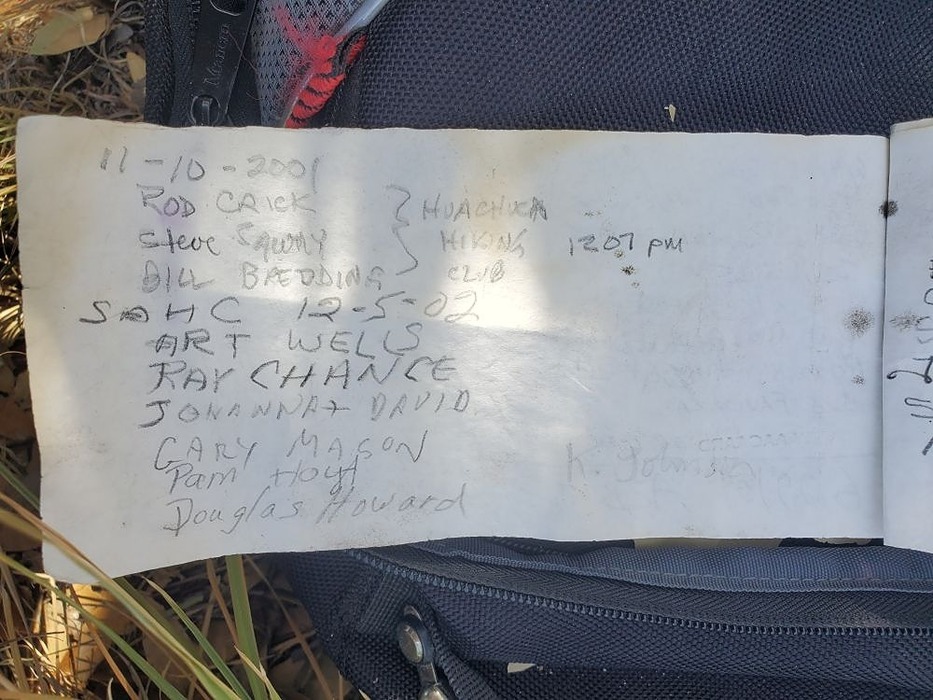 11-10-2001
ROD CRICK } HUACHUCA
Steve } HIKING 12 07 pm
BILL BAEDDING CLUB
SAHC 12-5-02
ART WELLS
RAY CHANCE
JOHANNA + DAVID
GARY MASON
Pam Hoyt
Douglas Howard
K.